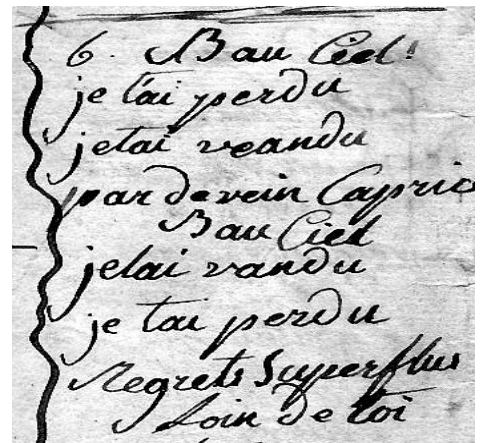 6. Bau Ciel!
je tai perdu
jetai veandu
par de vein Capric
Bau Ciel
jelai vandu
je tai perdu
Regrets Superflus
Loin de toi